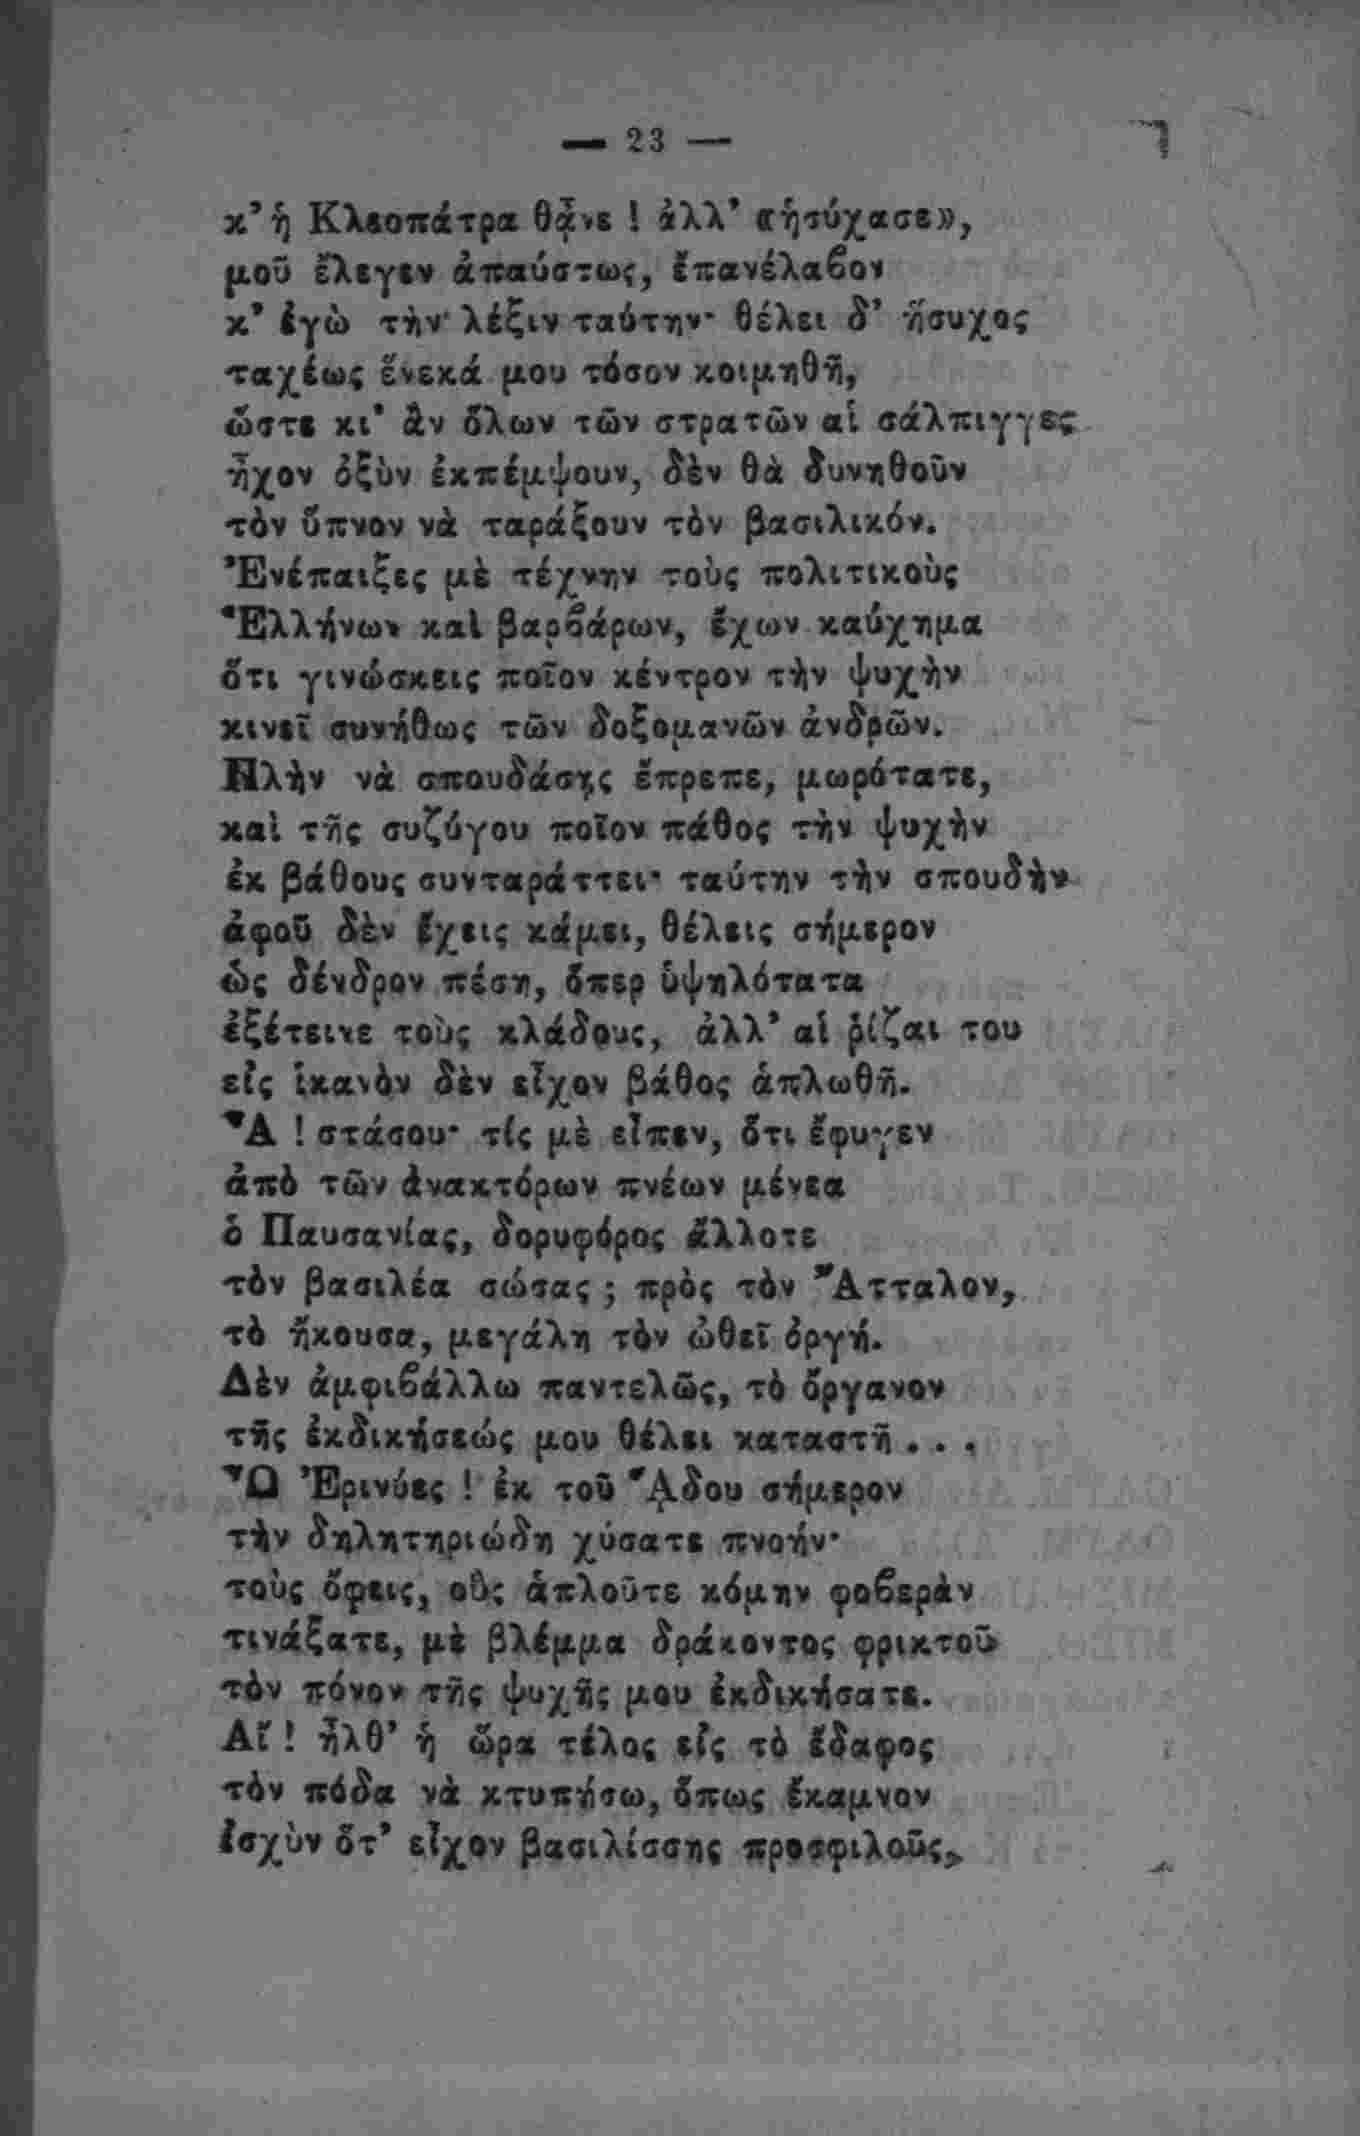 — 23 —
κ’ ἡ Κλεοπάτρα θᾶνε ! ἀλλ’ «ἡσύχασε»,
μοῦ ἔλεγεν ἀπαύστως, ἐπανέλαβον
κ’ ἐγὼ τὴν λέξιν ταύτην· θέλει δ’ ἥσυχος
ταχέως ἕνεκά μου τόσον κοιμηθῆ,
ὥστε κι’ ἂν ὅλων τῶν στρατῶν αἱ σάλπιγγες
ἦχον ὀξὺν ἐκπέμψουν, δὲν θὰ δυνηθοῦν
τὸν ὕπνον νὰ ταράξουν τὸν βασιλικόν.
Ἐνέπαιξες μὲ τέχνην τοὺς πολιτικοὺς
Ἑλλήνων καὶ βαρβάρων, ἔχων καύχημα
ὅτι γινώσκεις ποῖον κέντρον τὴν ψυχὴν
κινεῖ συνήθως τῶν δοξομανῶν ἀνδρῶν.
Πλὴν νὰ σπουδάσῃς ἔπρεπε, μωρότατε,
καὶ τῆς συζύγου ποῖον πάθος τὴν ψυχὴν
ἐκ βάθους συνταράττει· ταύτην τὴν σπουδὴν
ἀφοῦ δὲν ἔχεις κάμει, θέλεις σήμερον
ὡς δένδρον πέσῃ, ὅπερ ὑψηλότατα
ἐξέτεινε τοὺς κλάδους, ἀλλ’ αἱ ῥίζαι του
εἰς ἱκανὸν δὲν εἶχον βάθος ἁπλωθῆ.
Ἆ ! στάσου· τίς μὲ εἶπεν, ὅτι ἔφυγεν
ἀπὸ τῶν ἀνακτόρων πνέων μένεα
ὁ Παυσανίας, δορυφόρος ἄλλοτε
τὸν βασιλέα σώσας ; πρὸς τὸν Ἄτταλον,
τὸ ἤκουσα, μεγάλη τὸν ὠθεῖ ὀργή.
Δὲν ἀμφιβάλλω παντελῶς, τὸ ὄργανον
τῆς ἐκδικήσεώς μου θέλει καταστῆ . . .
Ὦ Ἐρινύες ! ἐκ τοῦ ᾍδου σήμερον
τὴν δηλητηριώδη χύσατε πνοήν·
τοὺς ὄφεις, οὓς ἁπλοῦτε κόμην φοβερὰν
τινάξατε, μὲ βλέμμα δράκοντος φρικτοῦ
τὸν πόνον τῆς ψυχῆς μου ἐκδικήσατε.
Αἴ ! ἦλθ’ ἡ ὥρα τέλος εἰς τὸ ἔδαφος
τὸν πόδα νὰ κτυπήσω, ὅπως ἔκαμνον
ἰσχὺν ὅτ’ εἶχον βασιλίσσης προσφιλοῦς,